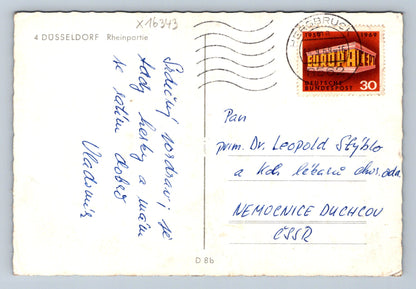 X 16343
4 DÜSSELDORF Rheinpartie
Srdečný pozdrav, je
tady hezky a mám
se zatím dobře
Vladimír
1959 1969
DEUTSCHE
BUNDESPOST 30
Pan
prim. Dr. Leopold Stýblo
a kol. lékařů chir. odd.
NEMOCNICE DUCHCOV
ČSSR
D 8b